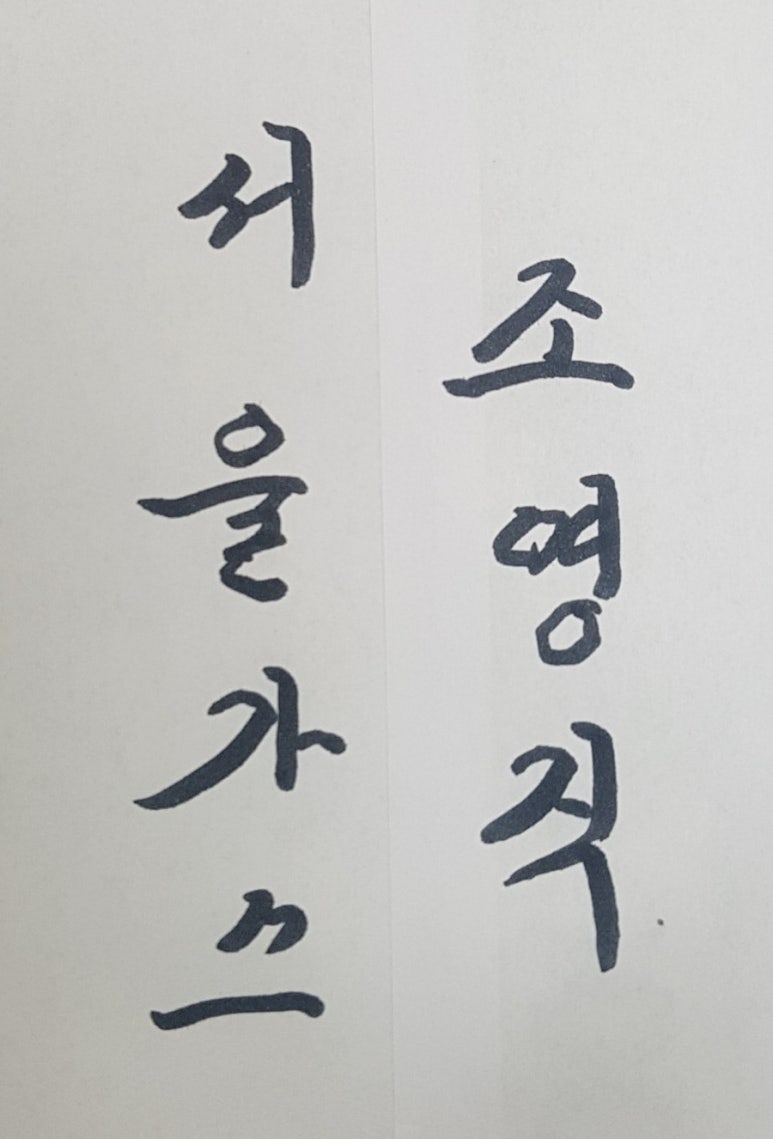 서울가스
조영직